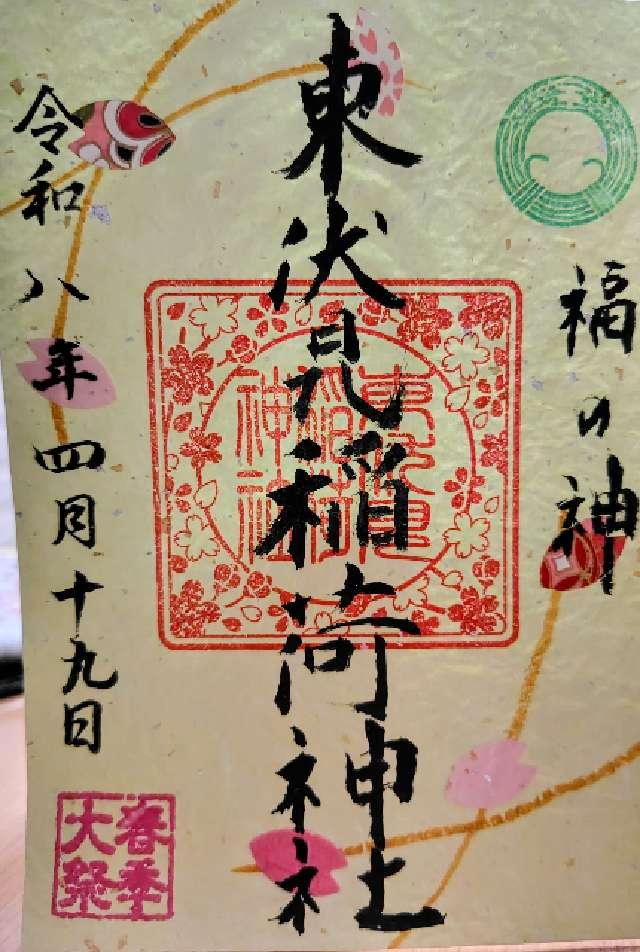 福の神
東伏見稲荷神社
東伏見
稲荷
神社
令和八年四月十九日
春季
大祭